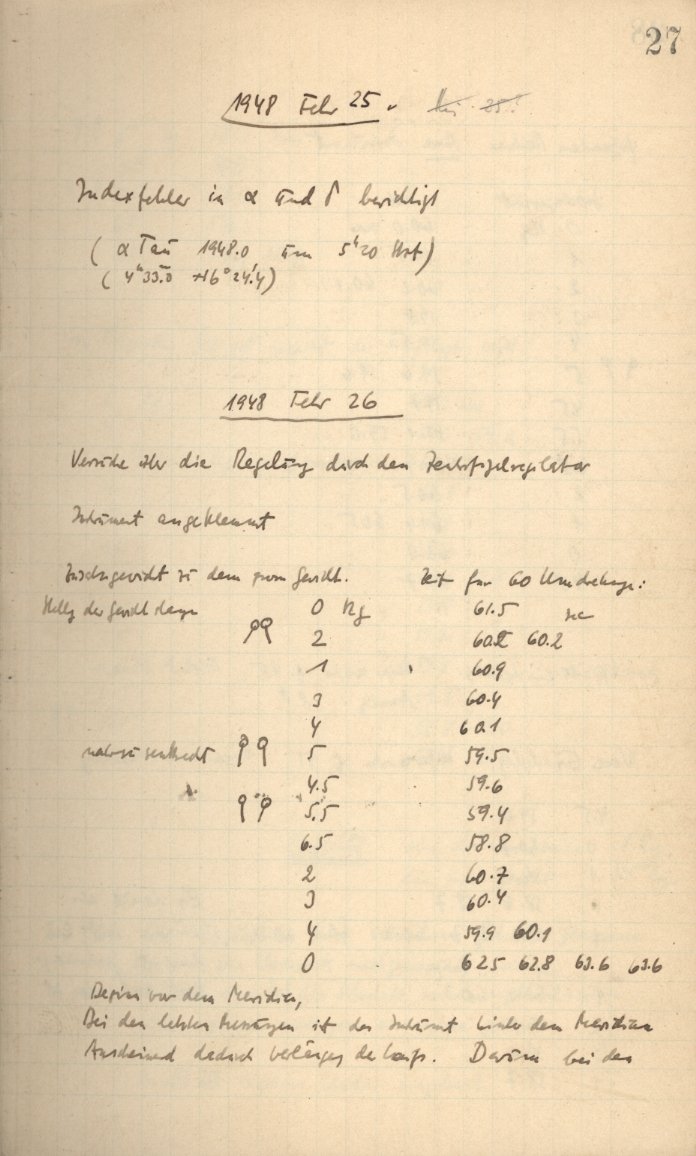 27
1948 Febr 25.
Indexfehler in α und δ berichtigt
( α Tau 1948.0 um 5ʰ20
( 4ʰ33.0 +16°24'.4)
1948 Febr 26
Versuche über die Regelung durch den Zentrifugalregulator
Instrument angeklemmt
Zusatzgewicht zu dem grossen Gewicht. Zeit für 60 Umdrehungen:
Stellg der Gewichtstange 0 Kg 61.5 sec
2 60.2 60.2
1 60.9
3 60.4
4 60.1
nahezu senkrecht 5 59.5
4.5 59.6
5.5 59.4
6.5 58.8
2 60.7
3 60.4
4 59.9 60.1
0 62.5 62.8 63.6 63.6
Beginn vor dem Meridian,
Bei den letzten Messungen ist das Instrument hinter dem Meridian
Anscheinend dadurch Verlängerg des Laufs. Darum bei den